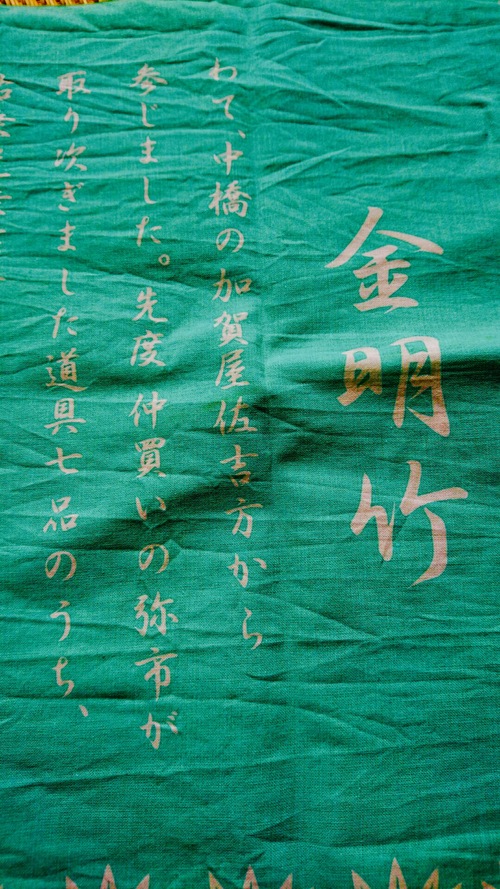 金明竹
わて、中橋の加賀屋佐吉方から
参じました。先度仲買いの弥市が
取り次ぎました道具七品のうち、